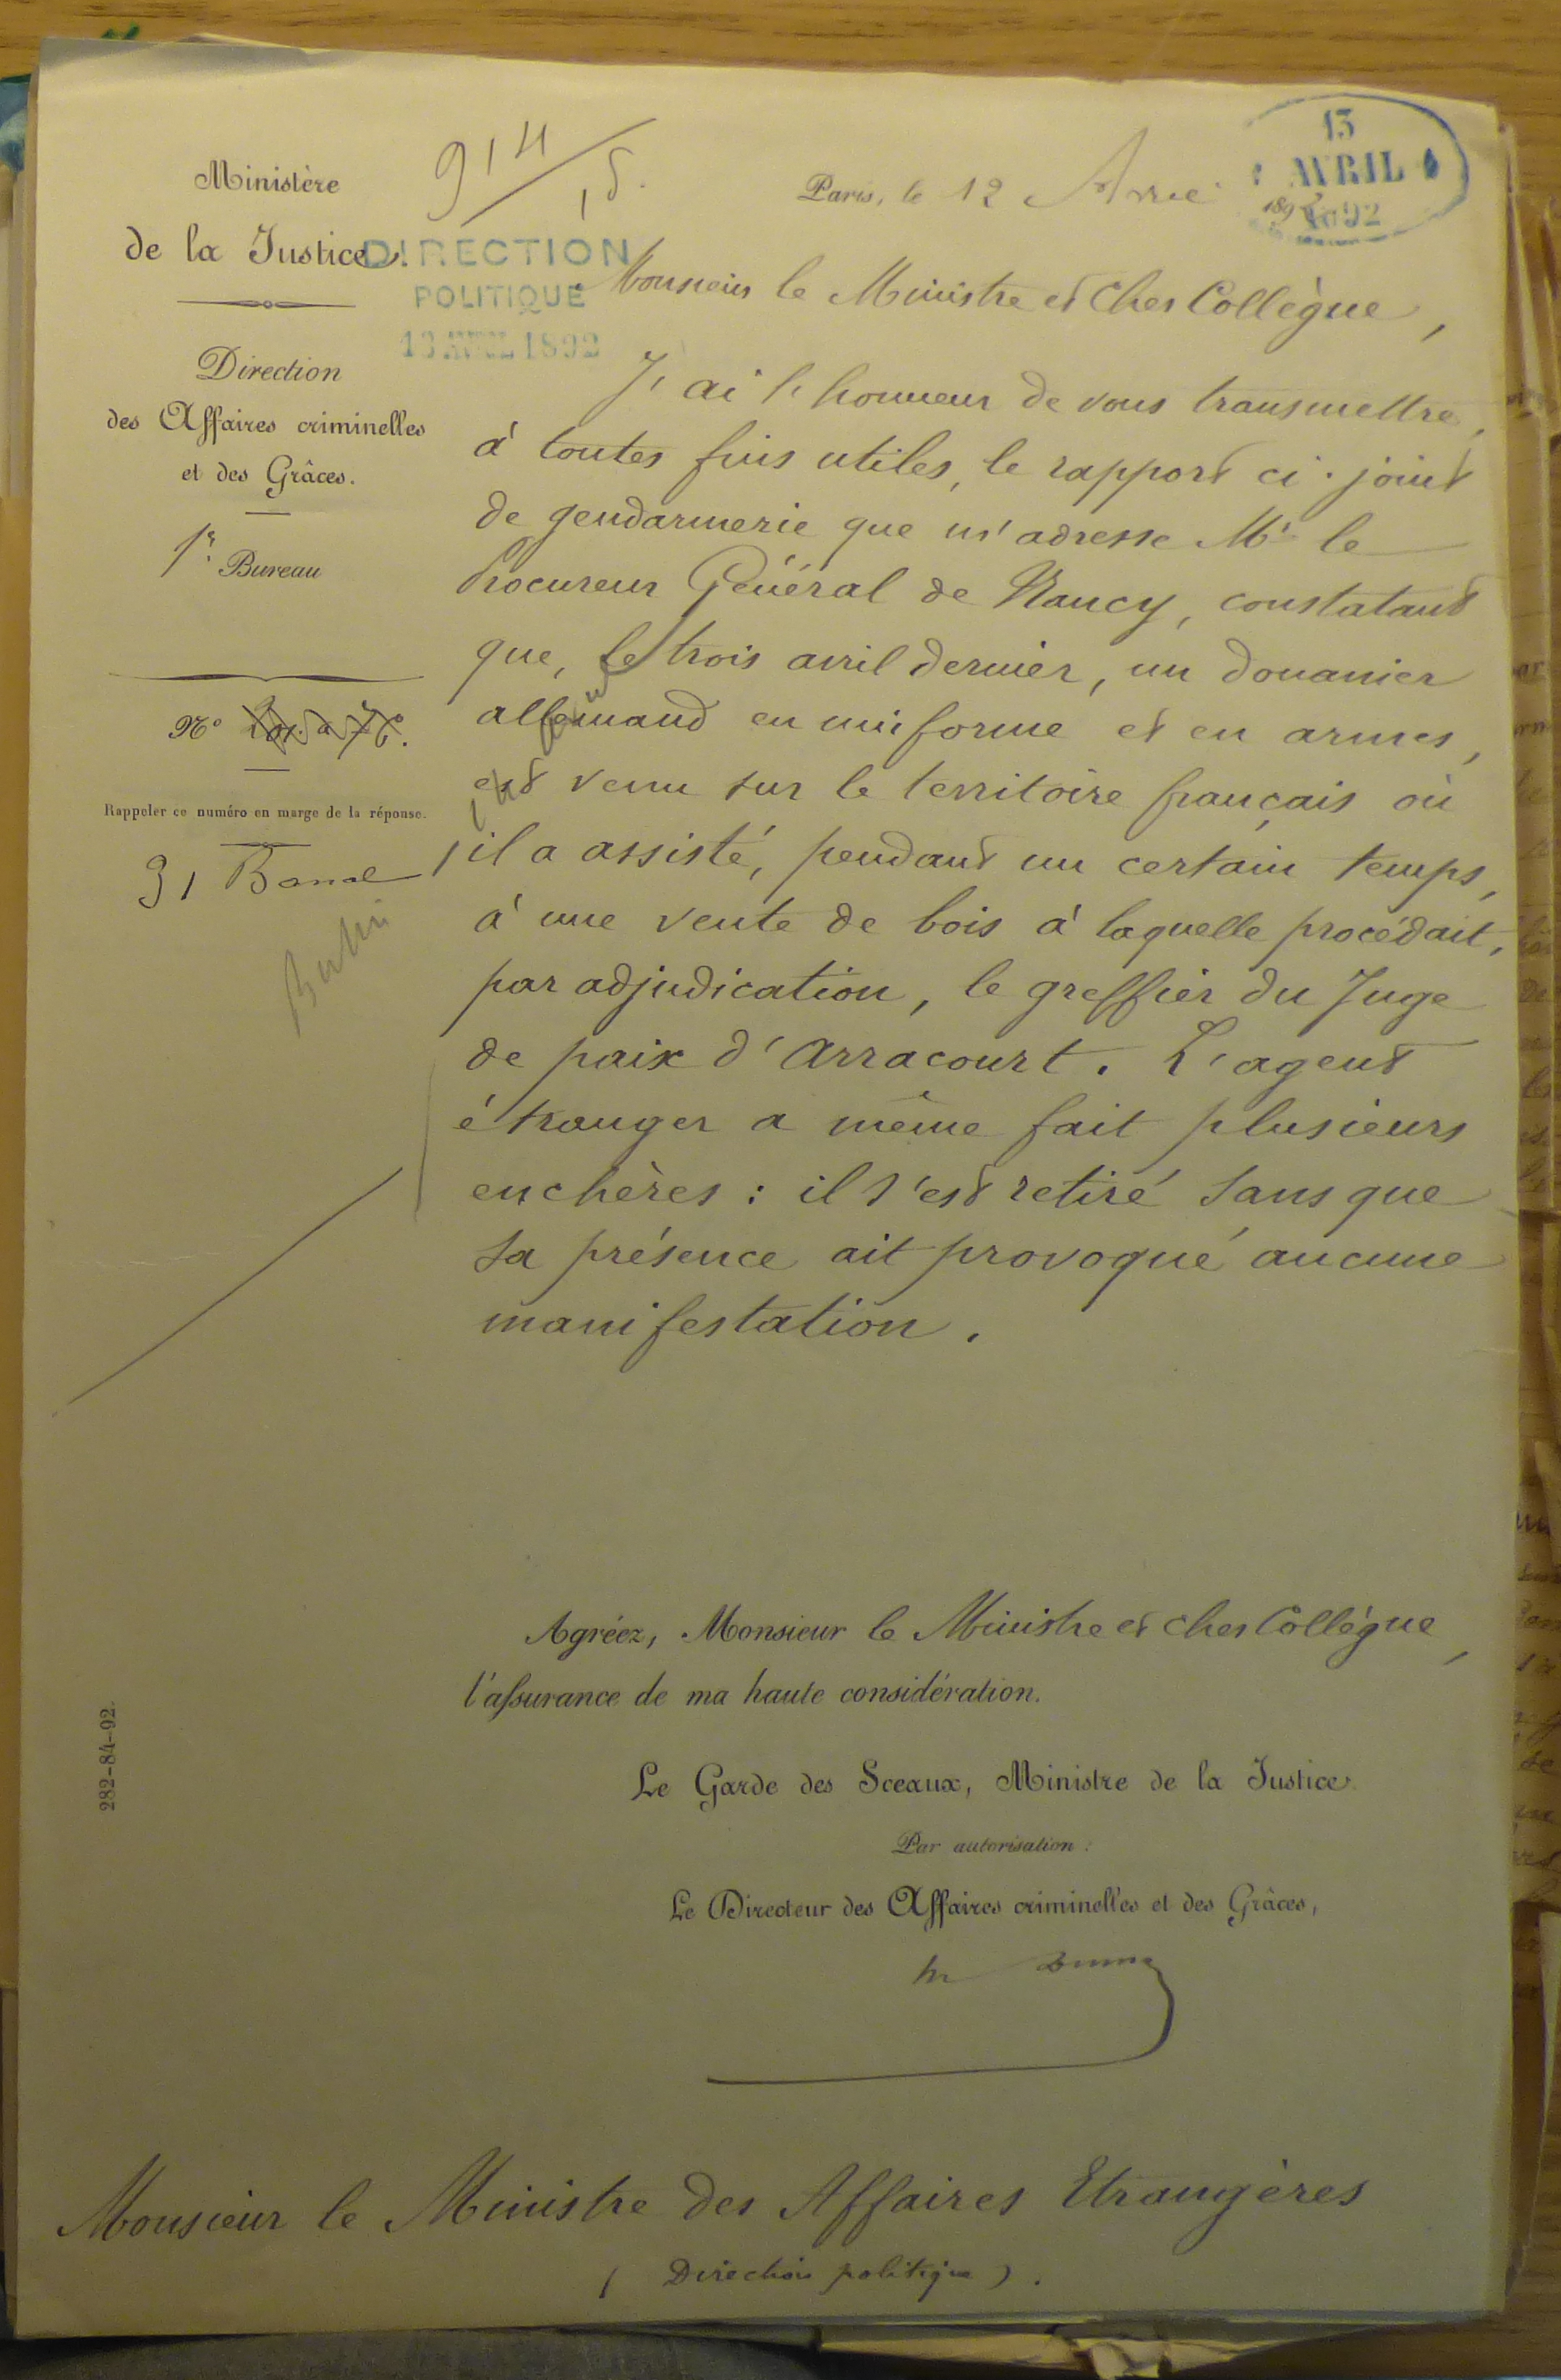 Ministère
de la Justice.
Direction
des Affaires criminelles
et des Grâces.
1er Bureau
N°
Rappeler ce numéro en marge de la réponse.
31 Banal
Berlin
914
15.
DIRECTION
POLITIQUE
13 AVRIL 1892
13
AVRIL
1892
Paris, le 12 Avril 1892
Monsieur le Ministre et Cher Collègue,
J'ai l'honneur de vous transmettre,
à toutes fins utiles, le rapport ci-joint
de gendarmerie que m'adresse Mr le
Procureur Général de Nancy, constatant
que, le trois avril dernier, un douanier
allemand en uniforme et en armes,
est venu sur le territoire français où
il a assisté, pendant un certain temps,
à une vente de bois à laquelle procédait,
par adjudication, le greffier du Juge
de paix d'Arracourt. L'agent
étranger a même fait plusieurs
enchères : il s'est retiré sans que
sa présence ait provoqué aucune
manifestation.
Agréez, Monsieur le Ministre et cher Collègue,
l'assurance de ma haute considération.
Le Garde des Sceaux, Ministre de la Justice.
Par autorisation :
Le Directeur des Affaires criminelles et des Grâces,
282-84-92.
Monsieur le Ministre des Affaires Etrangères
( Direction politique ).